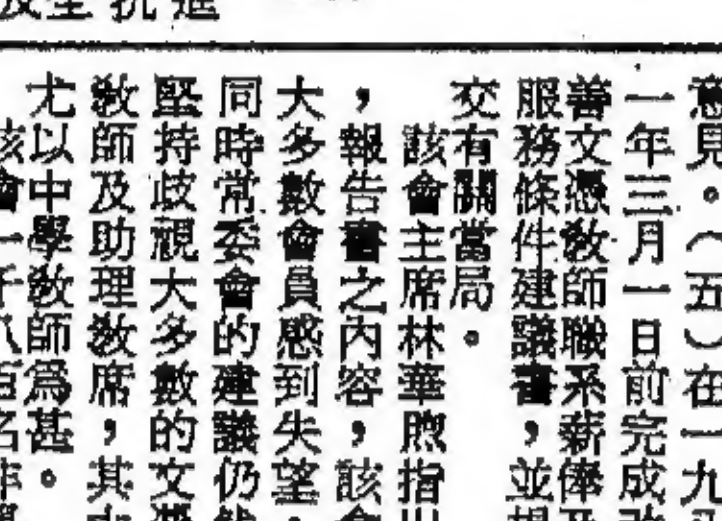 及全抗進
意見。（五）在一九
一年三月一日前完成改
善文憑教師職系薪俸及
服務條件建議書，並提
交有關當局。
該會主席林華煦指出
，報告書之內容，該會
大多數會員感到失望，
同時常委會的建議仍然
堅持歧視大多數的文憑
教師及助理教席，其中
尤以中學教師為甚。
該會一千八百名非學